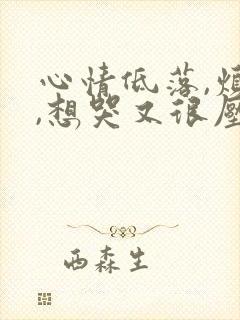 心情低落,烦
,想哭又很压
西森生